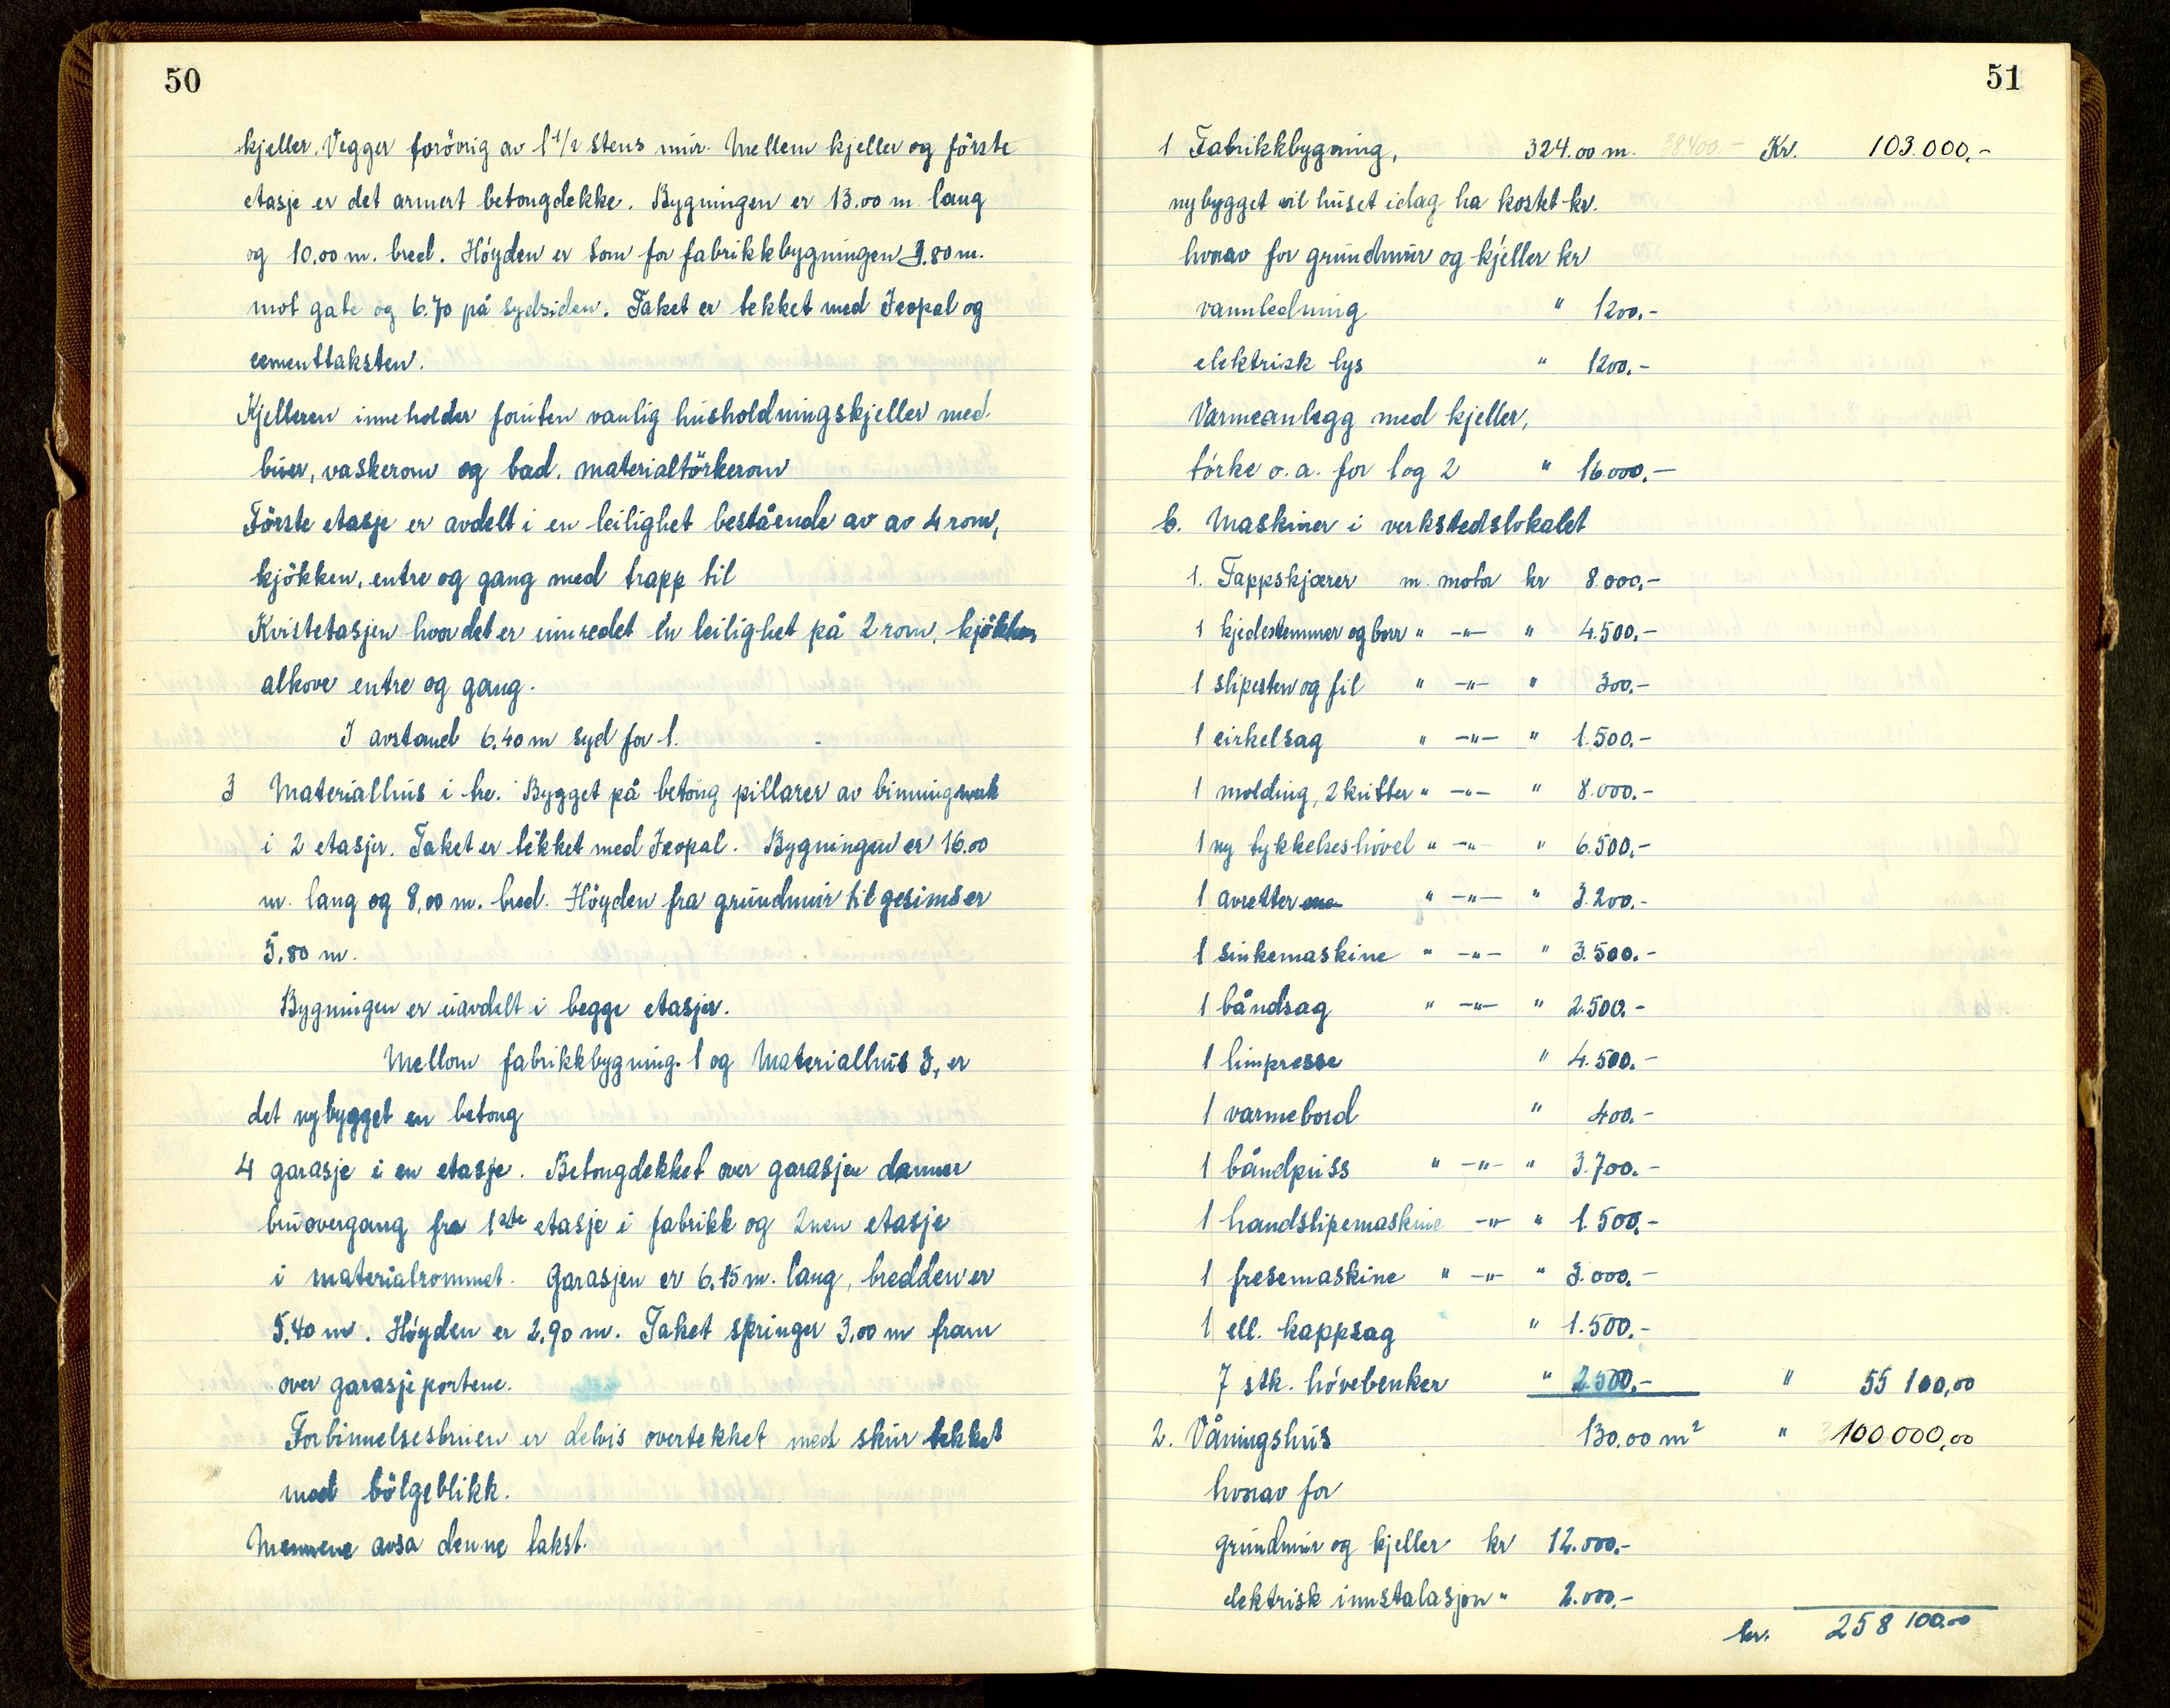 50
kjeller. Vegger forövrig av 1 1/2 stens mur. Mellem kjeller og förste
etasje er det armert betongdekke. Bygningen er 13.00 m lang
og 10.00 m. bred. Höyden er som for fabrikkbygningen 9.80 m.
mot gate og 6.70 på sydsiden. Taket er tekket med Icopal og
cementtaksten.
Kjelleren inneholder foruten vanlig husholdningskjeller med
buer, vaskerom og bad. materialtörkerom
Förste etasje er avdelt i en leilighet bestående av av 4 rom,
kjökken, entre og gang med trapp til
Kvistetasjen hvor det er innredet en leilighet på 2 rom, kjökken
alkove entre og gang.
I avstand 6.40 m syd for 1.
3 Materialhus i tre. Bygget på betong pillarer av binningverk
i 2 etasjer. Taket er tekket med Icopal. Bygningen er 16.00
m. lang og 8,00 m. bred. Höyden fra grundmur til gesims er
5,80 m.
Bygningen er uavdelt i begge etasjer.
Mellom fabrikkbygning. 1 og Materialhus 3, er
det nybygget en betong
4 garasje i en etasje. Betongdekket over garasjen danner
bruovergang fra 1ste etasje i fabrikk og 2nen etasje
i materialrommet. Garasjen er 6.15 m. lang, bredden er
5.40 m. Höyden er 2,90 m. Taket springer 3,00 m fram
over garasjeportene.
Forbinnelsesbruen er delvis overtekket med skur tekket
med bölgeblikk.
Mennene avsa denne takst.
51
1 Fabrikkbygning, 324.00 m. 38.400.- Kr. 103.000,-
nybygget vil huset idag ha kostet kr.
hvorav for grundmur og kjeller kr
vannledning " 1200.-
elektrisk lys " 1200.-
Varmeanlegg med kjeller,
törke o.a. for 1 og 2 " 16.000.-
b. Maskiner i verkstedslokalet
1. Tappskjærer m. motor kr 8.000,-
1 kjedestemmer og borr " -"- " 4.500,-
1 slipesten og fil " -"- " 300.-
1 cirkelsag " -"- " 1.500.-
1 molding, 2 kutter " -"- " 8.000.-
1 ny tykkelseshövel " -"- " 6.500,-
1 avretter " -"- " 3.200.-
1 sinkemaskine " -"- " 3.500.-
1 båndsag " -"- " 2.500.-
1 limpresse " 4.500.-
1 varmebord " 400.-
1 båndpuss " -"- " 3.700.-
1 handslipemaskine -"- " 1.500.-
1 fresemaskine " -"- " 3.000.-
1 ell. kappsag " 1.500.-
7 stk. hövebenker " 2.500.- " 55 100,00
2. Våningshus 130,00 m² " 100 000,00
hvorav for
grundmur og kjeller kr 12.000.-
elektrisk innstalasjon " 2.000.-
kr. 258 100.00